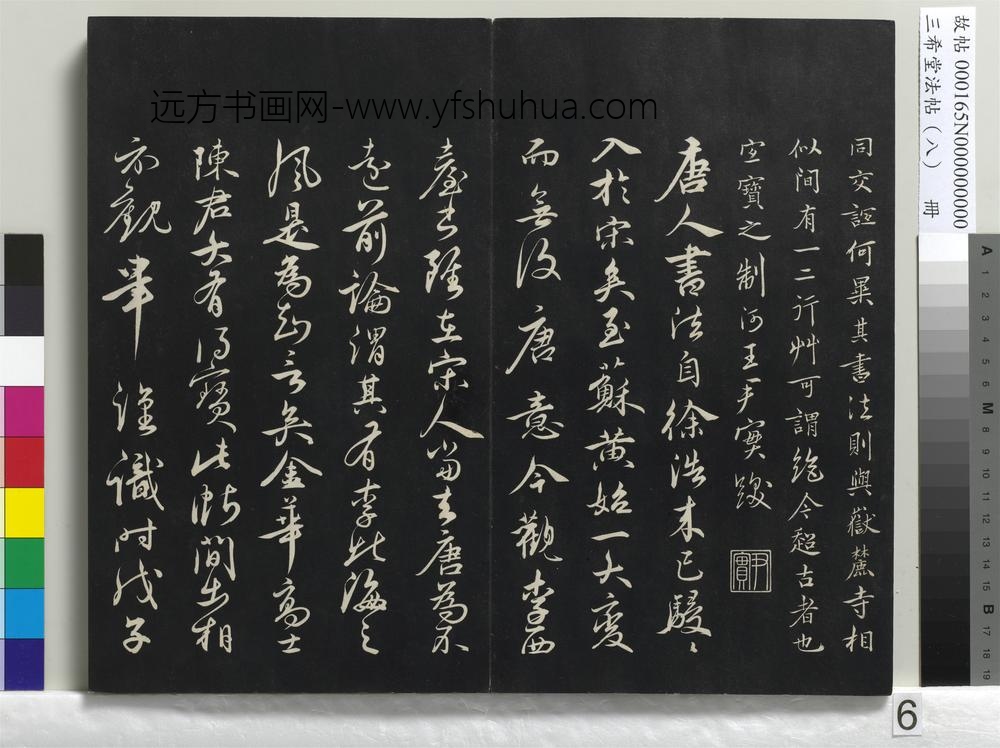 同交誼何異其書法則與嶽麓寺相
似間有一二行艸可謂絶今超古者也
宝寶之制河王手實跋
唐人書法自徐浩末已駸〻
入於宋矣至蘇黃始一大變
而無復唐意今觀李西
臺書雖在宋人當去唐為不
遠前論謂其有李北海之
風是為知言矣金華高士
陳君大有得寶此帖間出相
示觀畢謹識時戊子
故帖 000165N000000000
三希堂法帖(八) 冊
远方书画网-www.yfshuhua.com
6
A 1 2 3 4 5 6 M 8 9 10 11 12 13 14 15 B 17 18 19